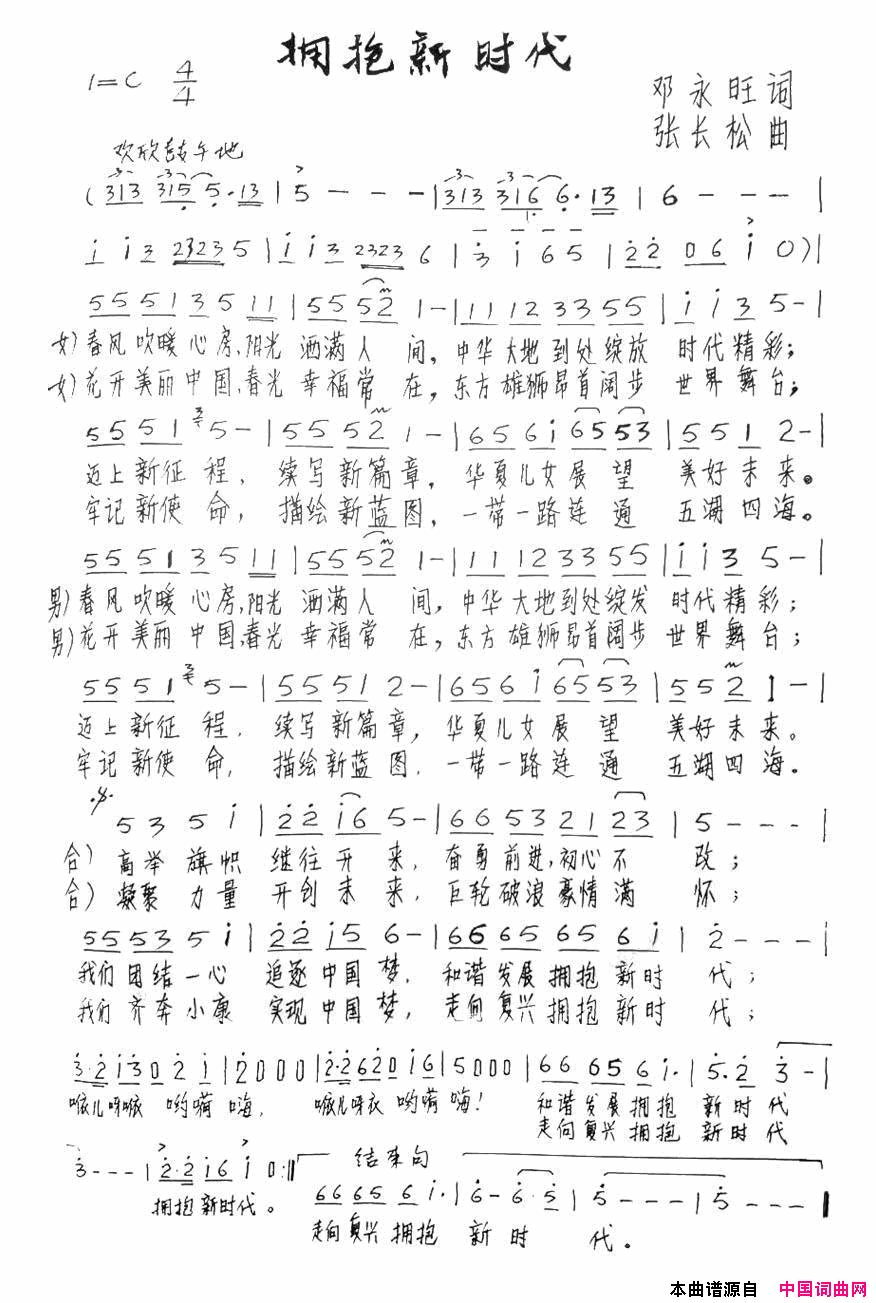 拥抱新时代
1=C 4/4
邓永旺词
张长松曲
欢欣鼓午地
(313 315 5·13 | 5 - - - | 313 316 6·13 | 6 - - - |
i i3 2323 5 | i i3 2323 6 | 3 i 6 5 | 22 06 i 0) |
555135 11 | 5552 1- | 1112 3355 | i i3 5- |
女)春风吹暖心房,阳光洒满人间,中华大地到处绽放时代精彩;
女)花开美丽中国,春光幸福常在,东方雄狮昂首阔步世界舞台;
5551 5- | 5552 1- | 656i 6553 | 551 2- |
迈上新征程,续写新篇章,华夏儿女展望美好未来。
牢记新使命,描绘新蓝图,一带一路连通五湖四海。
555135 11 | 5552 1- | 1112 3355 | i i3 5- |
男)春风吹暖心房,阳光洒满人间,中华大地到处绽发时代精彩;
男)花开美丽中国,春光幸福常在,东方雄狮昂首阔步世界舞台;
5551 5- | 5551 2- | 656i 6553 | 552 1- |
迈上新征程,续写新篇章,华夏儿女展望美好未来。
牢记新使命,描绘新蓝图,一带一路连通五湖四海。
5 3 5 i | 22 i6 5- | 6653 21 23 | 5 - - - |
合)高举旗帜继往开来,奋勇前进,初心不改;
合)凝聚力量开创未来,巨轮破浪豪情满怀;
5553 5 i | 22 i5 6- | 6665 65 6i | 2 - - - |
我们团结一心追逐中国梦,和谐发展拥抱新时代;
我们齐奔小康实现中国梦,走向复兴拥抱新时代;
3·2 i30 2 i | 2000 | 2·2 620 i6 | 5000 | 66 65 6i· | 5·2 3- |
嗾儿呀嗾哟嗬嗨,嗾儿呀衣哟嗬嗨!和谐发展拥抱新时代
走向复兴拥抱新时代
3 - - - | 2·2 i6 i 0 :|| 结束句
拥抱新时代。
66 65 6 i· | 6- 6·5 | 5 - - - | 5 - - - |
走向复兴拥抱新时代。
本曲谱源自 中国词曲网